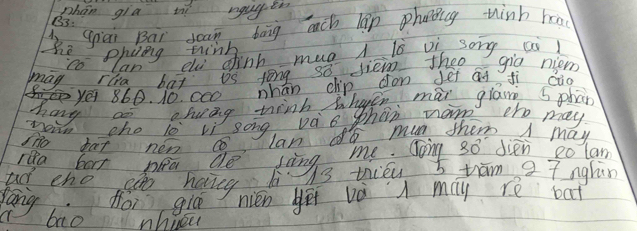 phân giá trị nguyên
B3:
1, Giải Bài toán bằng cách lập phương trình hoặc
hệ phương trình
cô lan dự định mua 1 lò vi sóng và 1
máy rửa bát vs tổng số tiềm theo giá niêm
yết 860.10.000 nhân dịp đón tết đi
hàng có chương trình khuyến mãi giảm 5 phần
trăm cho lò vi sóng và 6 phần trăm cho máy
rửa bát nên cô lan đã mua thêm 1 máy
rửa bart nữa để tặng mẹ. Tổng số tiền cô lan
trả cho cửa hàng là 13 triệu 5 trăm 27 nghìn
đồng. Hỏi giá niên yết và 1 máy rẻ bat
là bao nhiêu